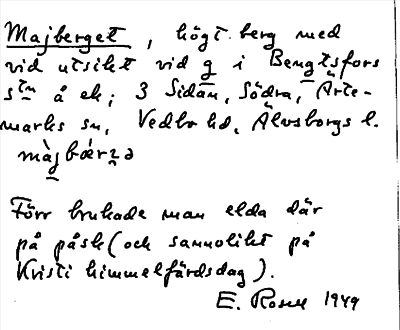 Majberget, högt berg med
vid utsikt vid g i Bengtsfors
stn å ek; 3 Sidan, Södra, Ärte-
marks sn, Vedbo hd, Älvsborgs l.
màjbæ̀rʒə
Förr brukade man elda där
på påsk (och sannolikt på
Kristi himmelfärdsdag).
E. Rosell 1949